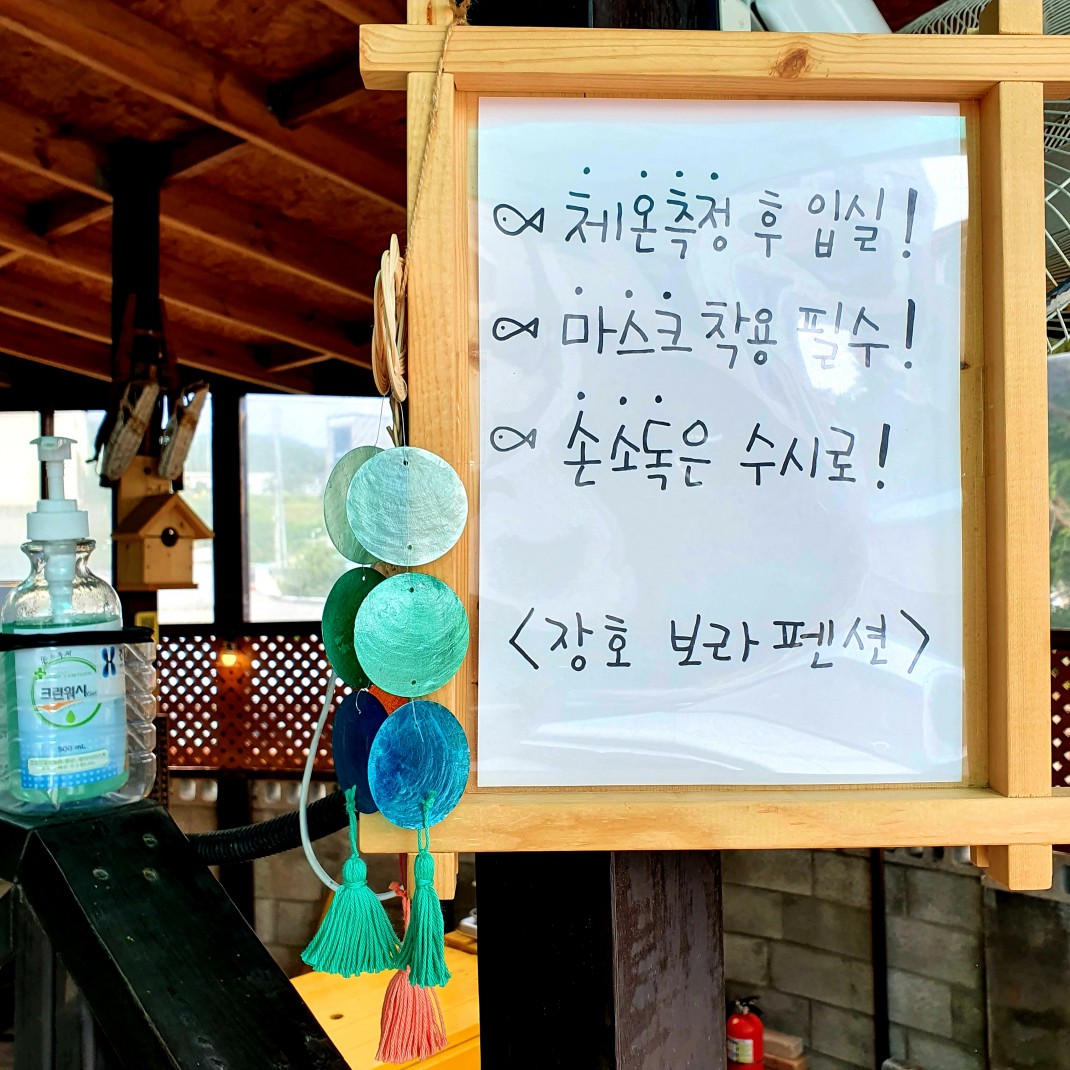 체온측정 후 입실!
마스크 착용 필수!
손소독은 수시로!
<장호 보라펜션>
크린워시
500 mL